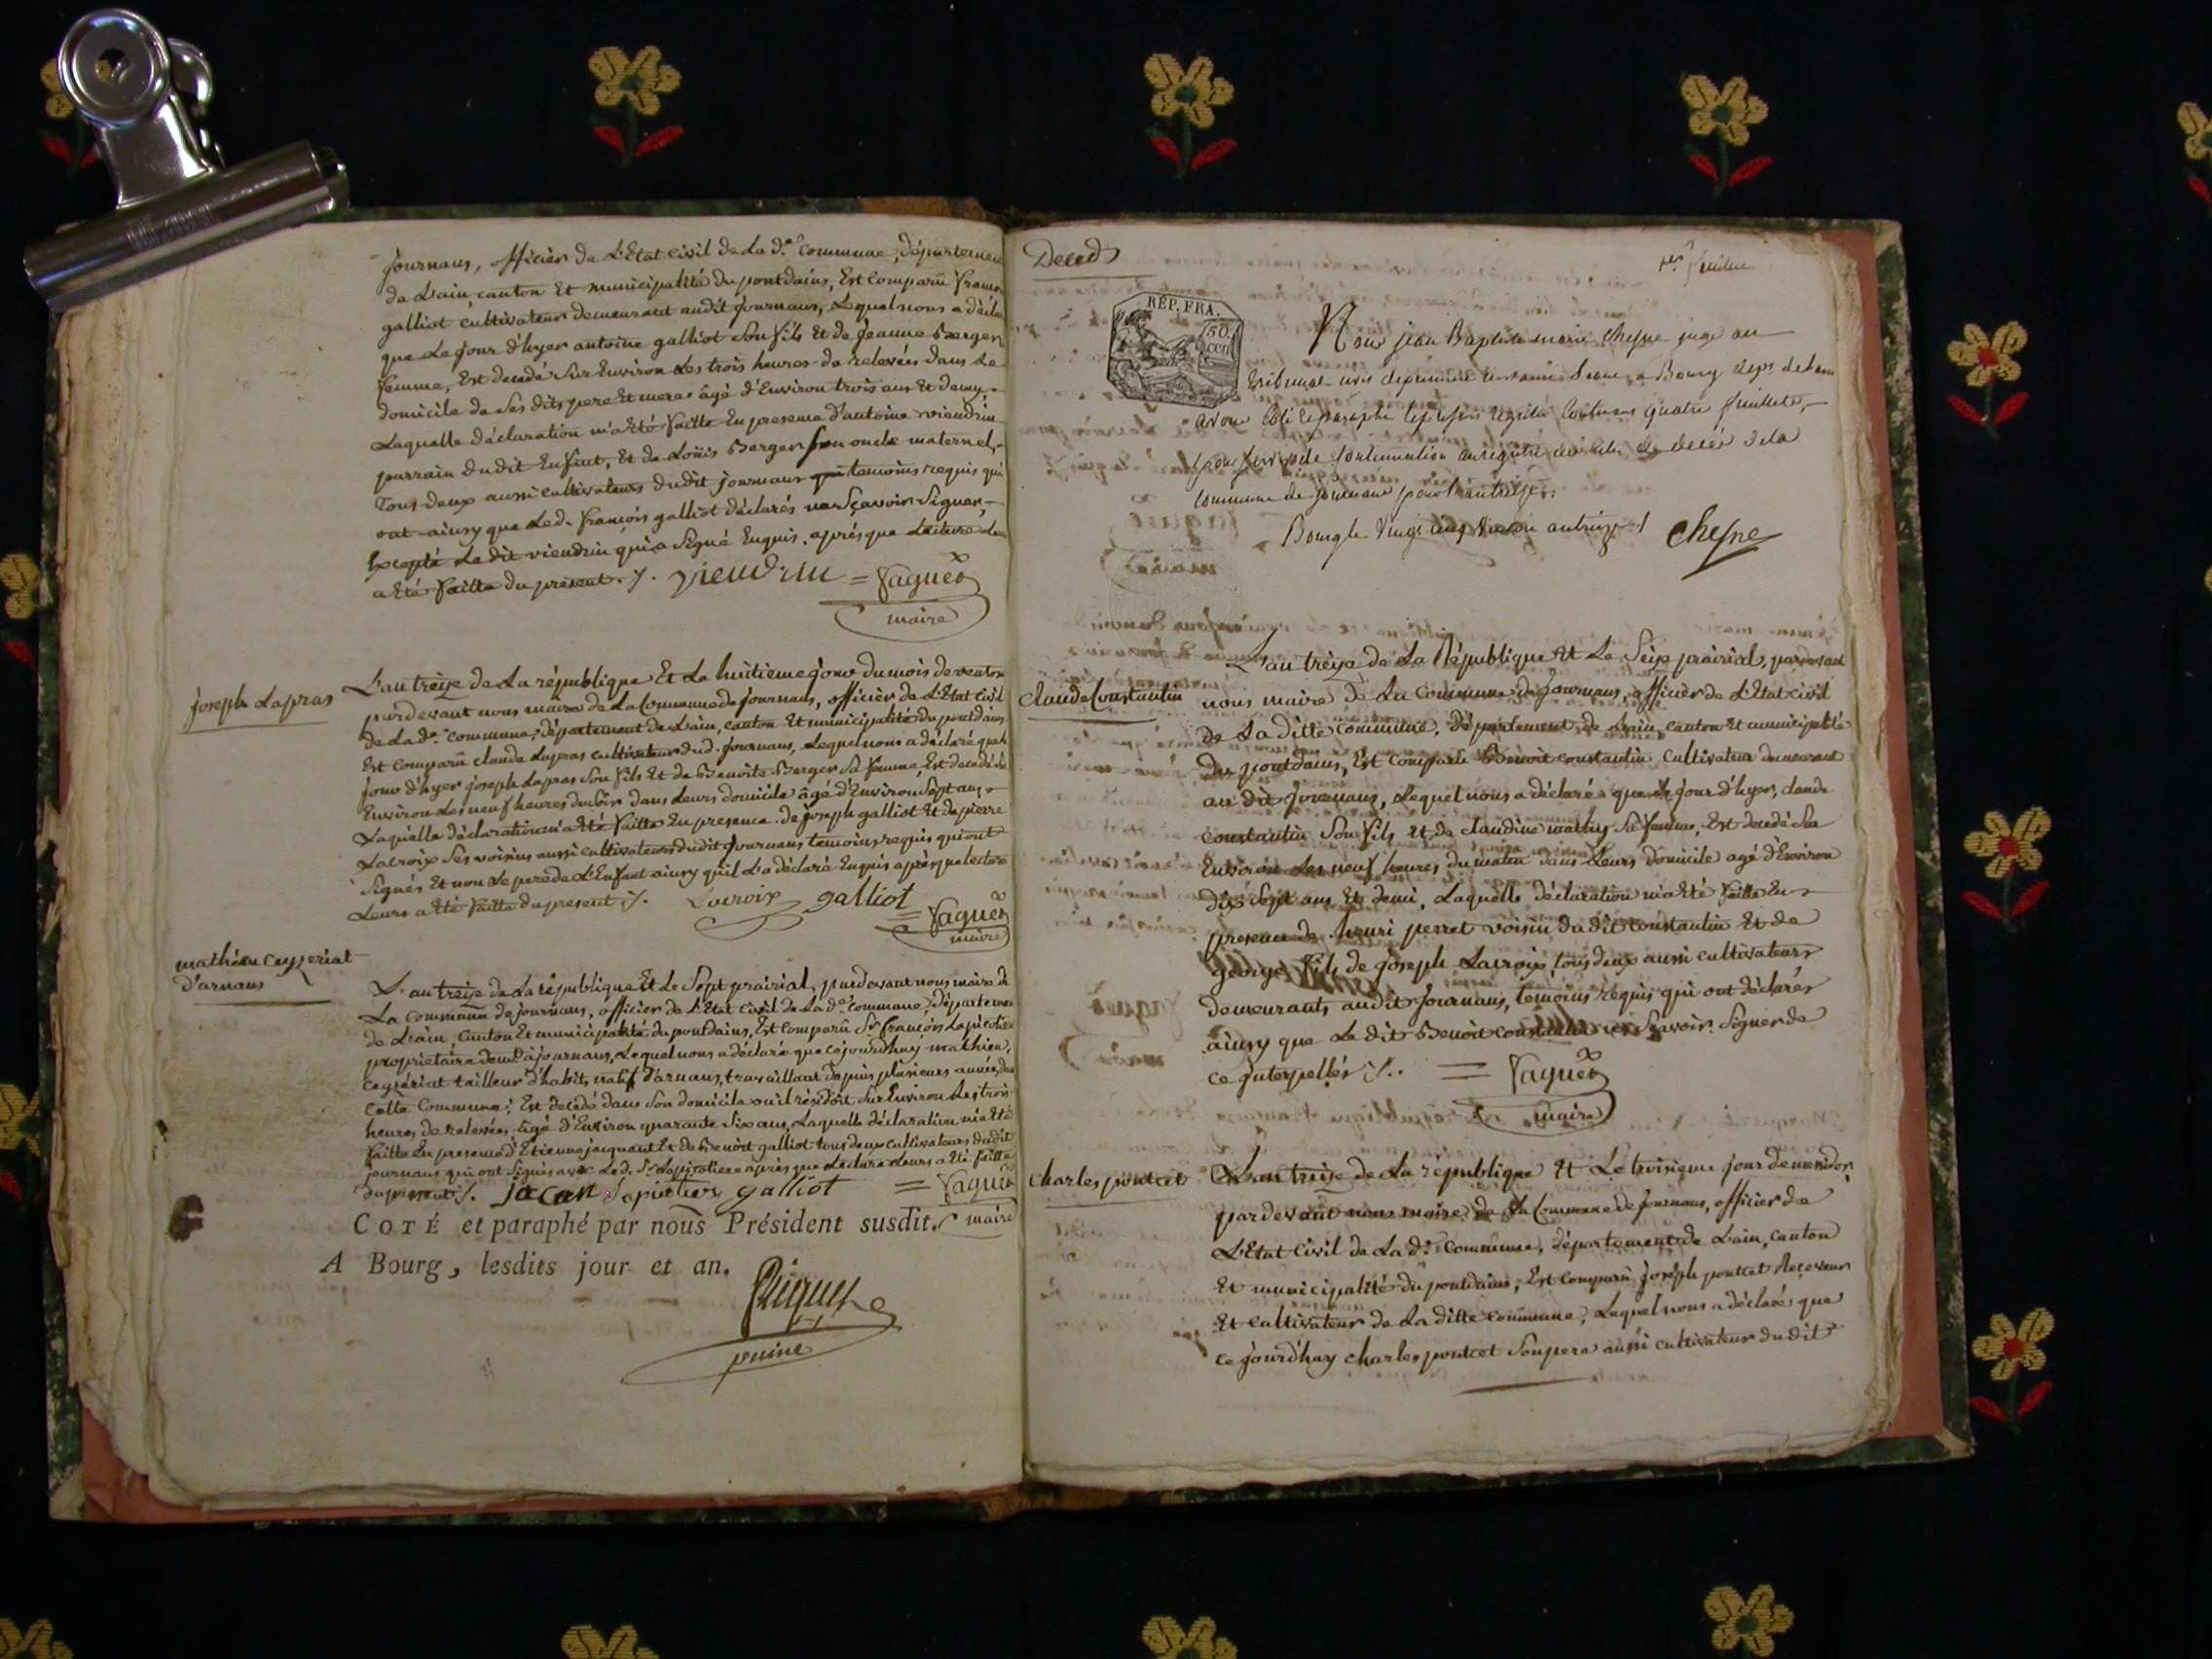 journans, officier de L'Etat civil de La d.e Commune, départemen
de L'ain, canton Et municipalité du pontdains, Est Comparû françois
galliot cultivateur demeurant audit journans, Lequel nous a décla
que Le jour d'hyer antoine galliot son fils Et de jeanne Berger
femme, Est decedé Sur Environ Les trois heures de relevées dans Le
domicile de Ses dits pere Et mere âgé d'Environ trois ans Et demy,
Laquelle déclaration m'a Eté faitte En presence d'antoine viendrin
parrain du dit Enfant, Et de Loüis Berger son oncle maternel,
Tous deux aussi cultivateurs dudit journans temoins requis qui
ont ainsy que Led. françois galliot déclarés ne Sçavoir Signer,
Excepté Le dit viendrin qui a Signé Enquis. après que Lecture
a Eté faitte du présent ./. viendrin = Vaguet
maire
joseph Lapras
L'an treize de La république Et Le huitieme jour du mois de ventos
pardevant nous maire de La Commune de journans, officier de L'Etat Civil
de La d.e commune, département de L'ain, canton Et municipalité du pontdains
Est comparû claude Lapras cultivateur dud. journans, Lequel nous a déclaré que le
jour d'hyer joseph Lapras son fils Et de Benoite Berger Sa femme, Est decedé
Environ Les neuf heures du Soir dans Leurs domicile âgé d'Environ Sept ans,
Laquelle déclaration m'a Eté faitte En presence de joseph galliot Et de pierre
Lacroix Ses voisins aussi cultivateurs dudit journans temoins requis qui ont
Signés Et non Le pere de L'Enfant ainsy qu'il L'a déclaré Enquis après que lecture
Leurs a Eté faitte du present ./. Lacroix galliot
= Vaguet
maire
mathieu Ceyzeriat
d'arnans
L'an treize de La république Et Le Sept prairial, pardevant nous maire de
La Commune de journans, officier de L'Etat Civil de La d.e Commune, départemen
de L'ain, Canton Et municipalité du pontdains, Est Comparû Sr. françois Lapietiere
proprietaire demt. à journans, Lequel nous a déclaré que cejourd'huy mathieu
ceyzériat tailleur d'habit, natif d'arnans, travaillant depuis plusieurs années dans
Cette Commune, Est decedé dans Son domicile où il residoit Sur Environ Les trois
heures de relevées, âgé d'Environ quarante Six ans, Laquelle déclaration m'a Eté
faitte En presence d'Etienne jacquant Et de Benoit galliot tous deux Cultivateurs dudit
journans qui ont Signés avec Led. Sr. Lapietiere après que Lecture Leurs a Eté faitte
du present ./. jacan Lapietiere galliot = Vaguet
COTÉ et paraphé par nous Président susdit. maire
A Bourg, lesdits jour et an.
Riquet
puiné
Deceds
1er feuillet
RÉP. FRA.
50
cen
Nous jean Baptiste marie Chesne juge au
tribunal civil de premiere instance Séant a Bourg dept. de Lain
avons Coté et paraphé le présent registre Contenant quatre feuillets,
pour servir de Continuation au registre des actes de décès de la
commune de journans pour l'an treize.
Bourg le vingt cinq floréal an treize ./. Chesne
Claude Constantin
L'an treize de La République Et Le Seize prairial, pardevant
nous maire de La Commune de journans, officier de L'Etat civil
de La ditte commune, département de L'ain, canton Et municipalité
du pontdains, Est Comparû Benoit Constantin Cultivateur demeurant
au dit journans, Lequel nous a déclaré que Le jour d'hyer, claude
constantin Son fils Et de claudine mathy Sa femme, Est decedé Sur
Environ Les neuf heures du matin dans Leurs domicile agé d'Environ
dix Sept ans Et demi, Laquelle déclaration m'a Eté faitte En
presence de henri perret voisin du dit Constantin Et de
george fils de joseph Lacroix, tous deux aussi cultivateurs
demeurants audit journans, temoins requis qui ont déclarés
ainsy que Le dit Benoit constantin ne Sçavoir Signer de
ce jnterpellés ./. = Vaguet
maire
Charles pontcet
L'an treize de La république Et Le troisieme jour de messidor,
pardevant nous maire de La Commune de journans, officier de
L'Etat Civil de La d.e Commune, département de L'ain, canton
Et municipalité du pontdains, Est Comparû joseph pontcet Receveur
Et cultivateur de La ditte commune, Lequel nous a déclaré que
ce jourd'huy charles pontcet Son pere aussi cultivateur du dit